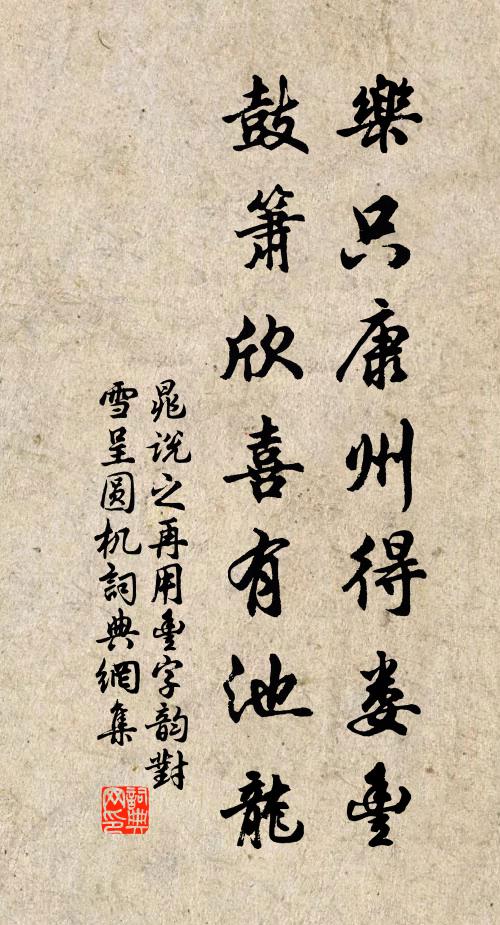 樂只康州得婁豐
鼓簫欣喜有池龍
晁說之再用豐字韵對
雪呈圆机詞典網集
詞典网印